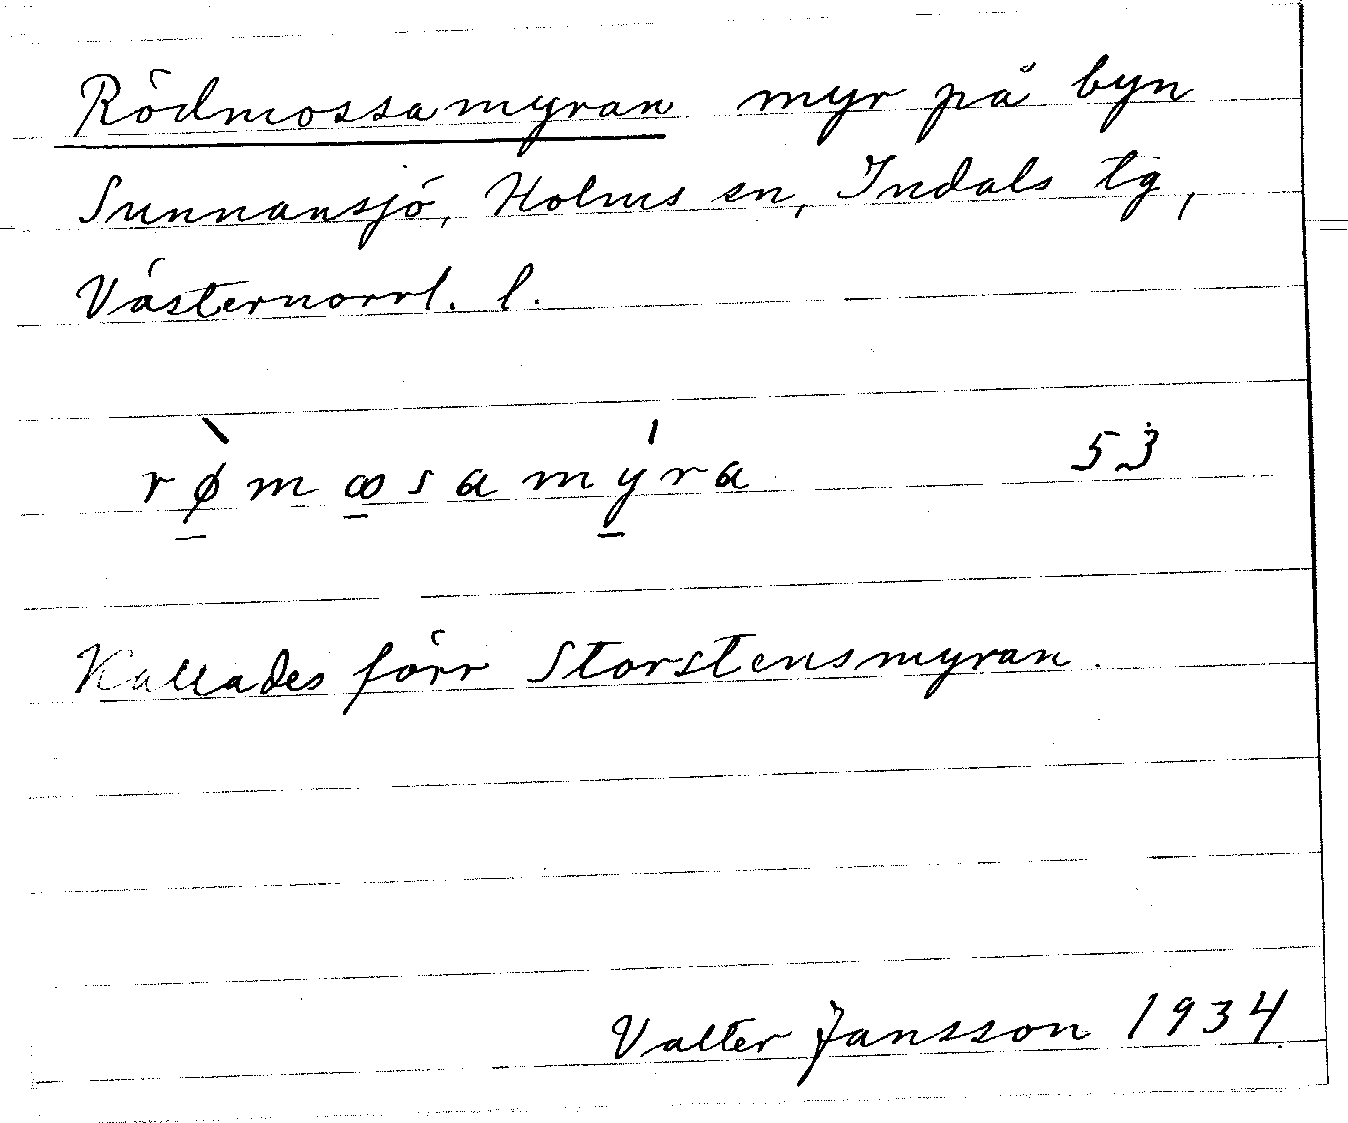 Rödmossamyran myr på byn
Sunnansjö, Holms sn, Indals tg,
Västernorrl. l.
rø̀mꝏsamýra 53
Kallades förr Storstensmyran.
Valter Jansson 1934